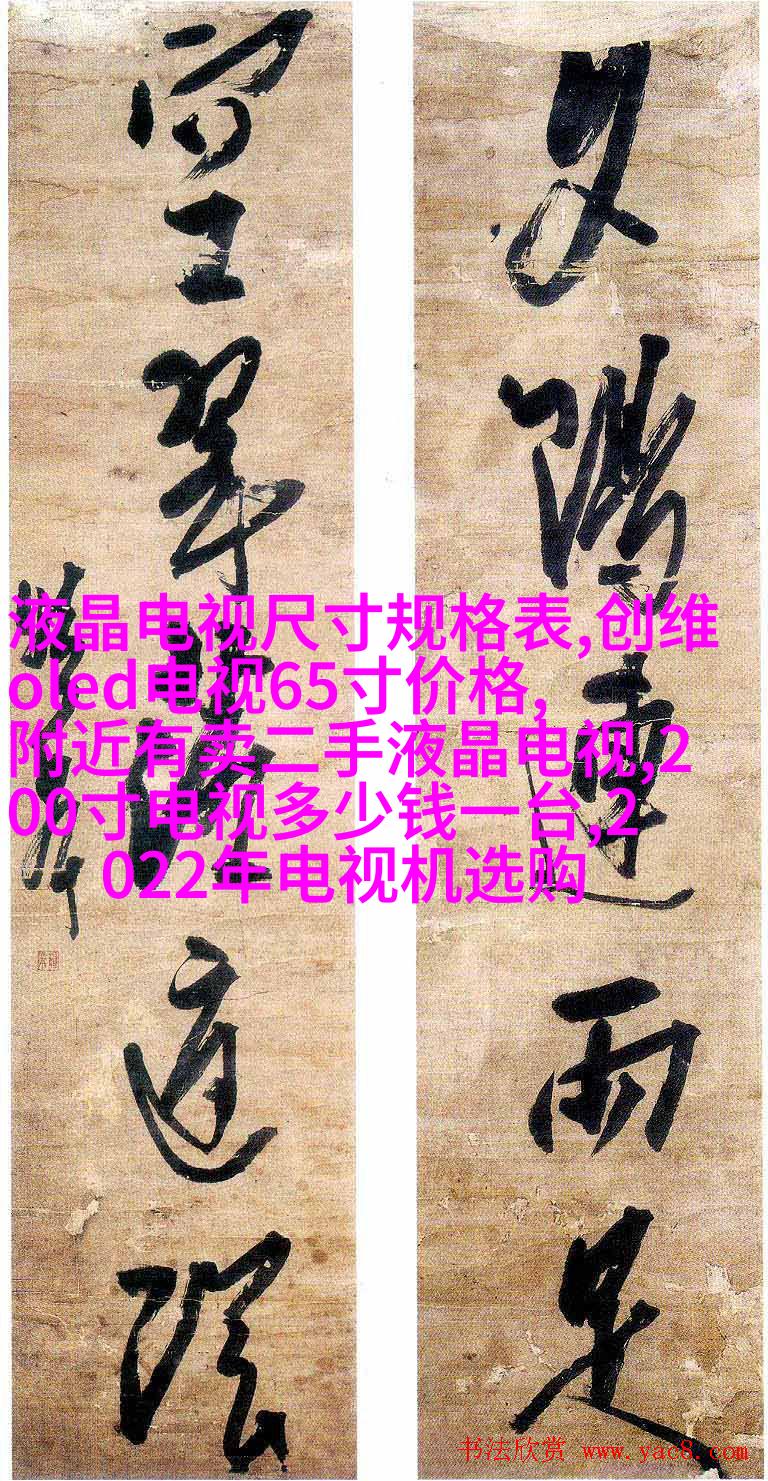 夕陽連雨足
空翠落庭陰
液晶电视尺寸规格表,创维
oled电视65寸价格,
附近有卖二手液晶电视,2
00寸电视多少钱一台,2
022年电视机选购
书法欣赏 www.yac8.com